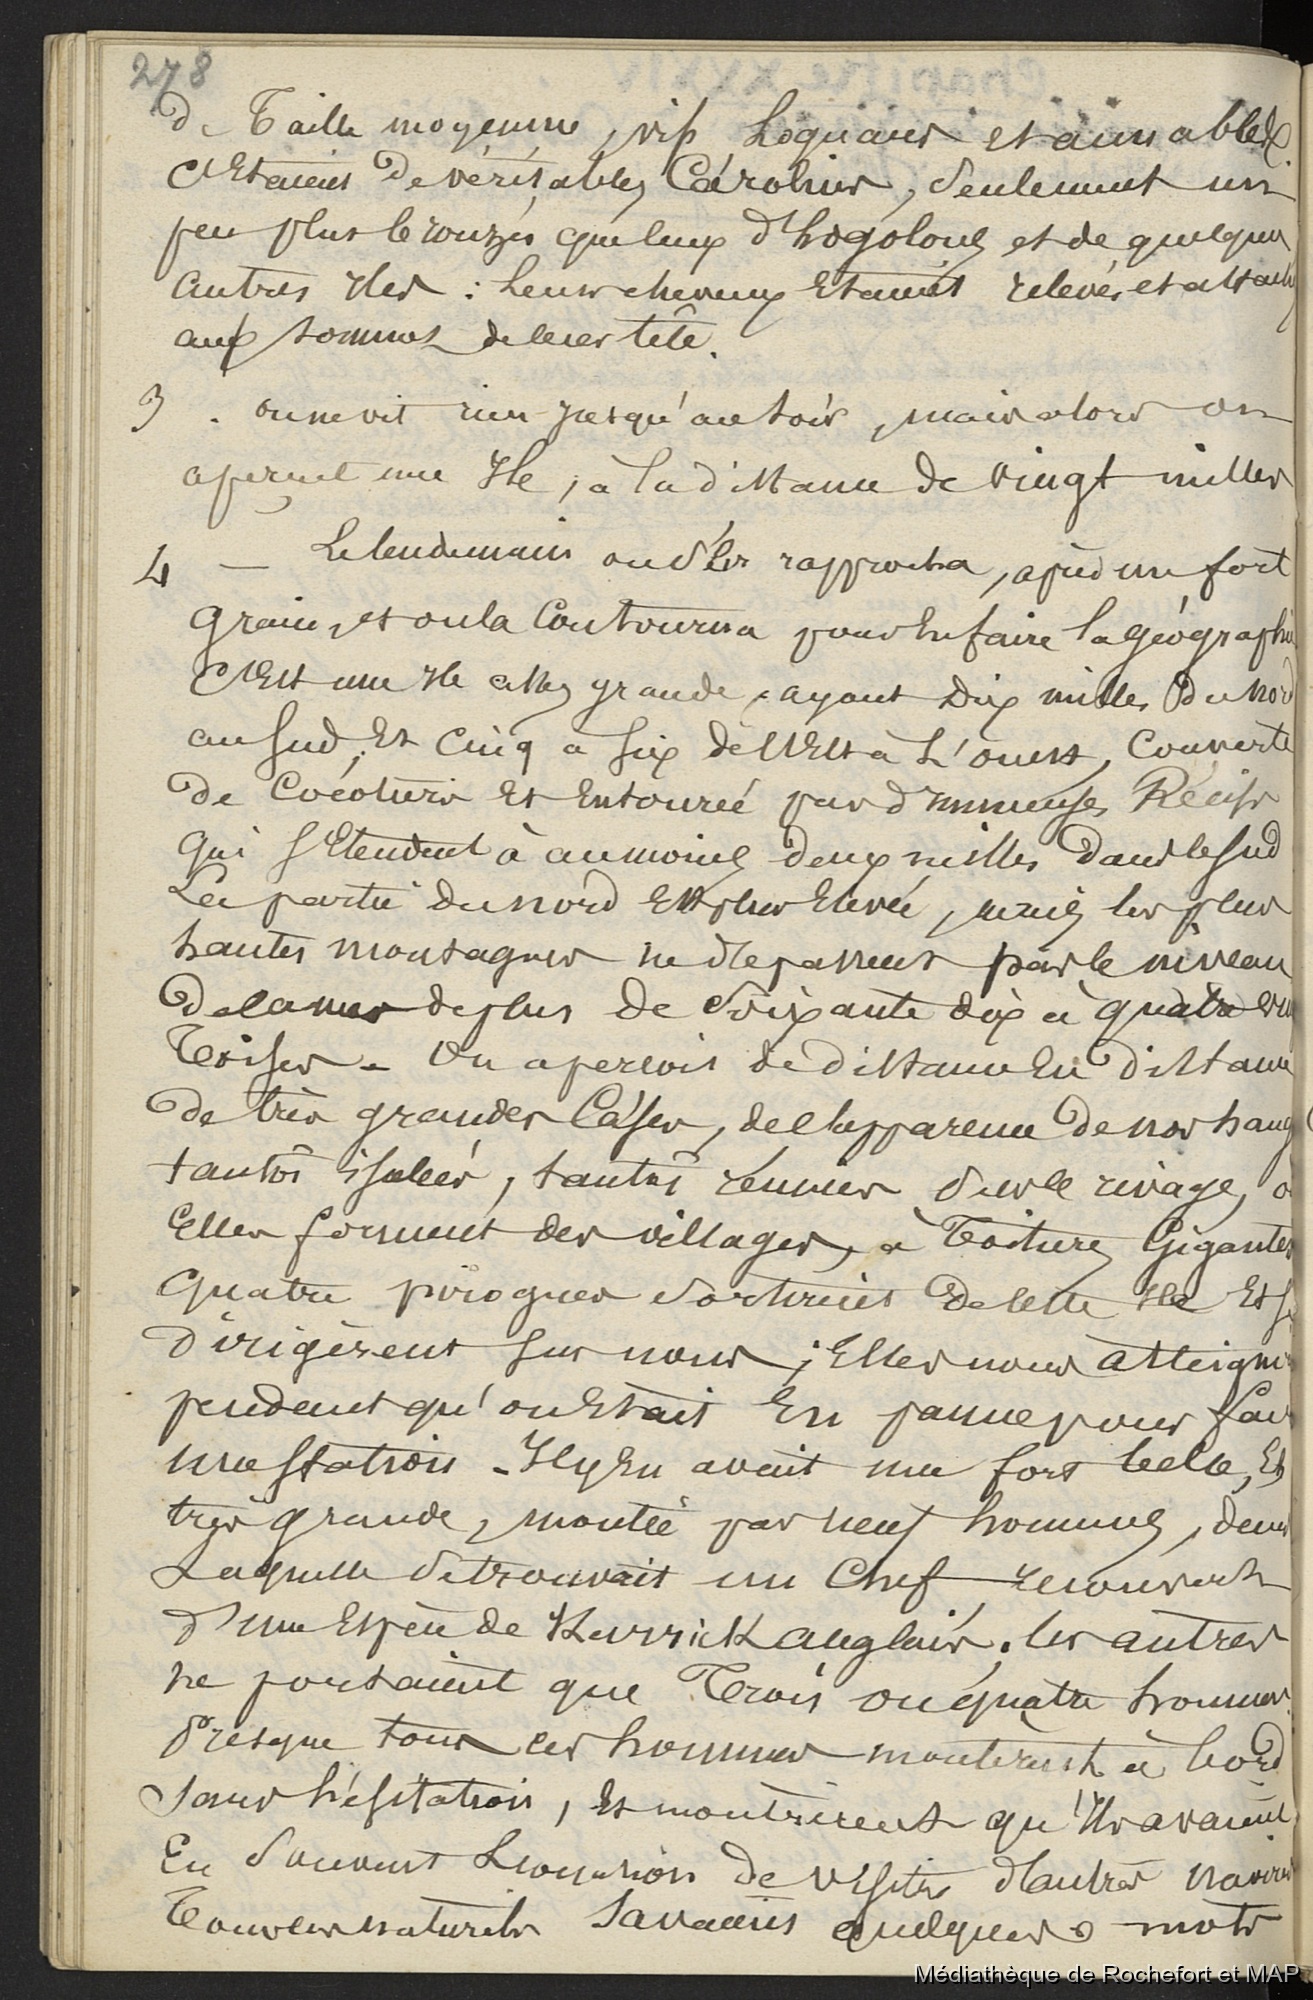 278
de Taille moyenne, vifs Loquaces et aimables.
C'Etaient de véritables Carolins, Seulement un
peu plus bronzés que ceux d'hogolous et de quelques
autres Iles : Leurs cheveux Etaient relevés et attachés
aux sommet de leur tête.
3 . on ne vit rien jusqu'au soir, mais alors on
aperçut une Ile, à la distance de vingt milles
4 — Le lendemain on s'en rapprocha, après un fort
grain, et on la Contourna pour En faire la géographie
C'Est une Ile assez grande, ayant Dix milles du nord
au Sud, Et Cinq a Six de l'Est à L'ouest, Couverte
de Cocotiers Et Entourée par d'Immenses Récifs
qui S'Etendent à au moins deux milles dans le Sud
La partie du nord Est plus Elevée, mais les plus
hautes montagnes ne dépassent pas le niveau
de la mer de plus de Soixante dix à quatre vin
Toises - On aperçois de distance En distance
de très grandes Cases, de l'apparence de nos hang
tantôt isolées, tantôt réunies sur le rivage, o
Elles forment des villages, à Toitures Gigantes
Quatre pirogues sortirent de cette Ile Et se
dirigèrent sur nous ; Elles nous atteignir
pendant qu'on Etait En panne pour fair
une Station - Il y En avait une fort belle, Et
très grande, montée par neuf hommes, dans
Laquelle se trouvait un Chef recouvert
d'une Espèce de Karrick anglais. les autres
ne portaient que Trois ou quatre hommes.
Presque tous ces hommes montèrent à bord
Sans hésitation, Et montrèrent qu'Ils avaient
Eu Souvent L'occasion de visiter d'autres navires
Tous ces naturels Savaient quelques mots
Médiathèque de Rochefort et MAP